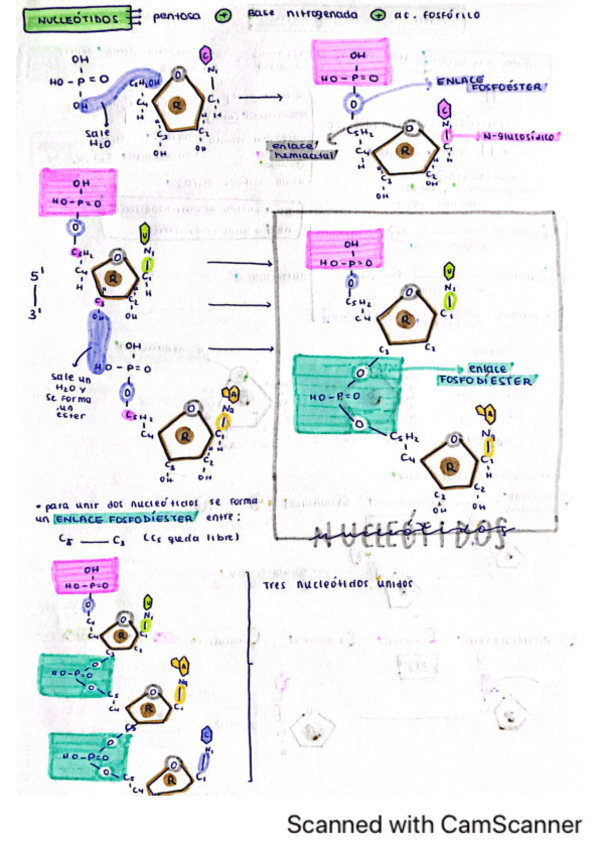 NUCLEÓTIDOS → pentosa + Base nitrogenada + ác. FOSFÓRICO
OH
HO - P = O
OH
sale H2O
C5H2OH
O
R
C
N1
C1
H
C4
H
OH
OH
OH
HO - P = O
O
ENLACE FOSFOÉSTER
C5H2
enlace hemiacetal
C4
H
O
R
C
N1
C1
H
N-glucosídico
OH
OH
OH
HO - P = O
O
C5H2
C4
H
O
R
U
N1
C1
H
C3
C2
OH
OH
5'
3'
OH
HO - P = O
sale un H2O y se forma un ester
O
C5H2
C4
O
R
A
N9
C1
H
C3
C2
OH
OH
OH
HO - P = O
O
C5H2
C4
O
R
U
N1
C1
C3
C2
O
HO - P = O
O
enlace FOSFODIÉSTER
C5H2
C4
O
R
A
N9
C1
H
C3
C2
OH
OH
NUCLEÓTIDOS
• para unir dos nucleótidos se forma
un ENLACE FOSFODIÉSTER entre:
C5 — C3 (C5 queda libre)
OH
HO - P = O
O
C5
C4
O
R
U
N1
C1
C3
C2
O
HO - P = O
O
C5
C4
O
R
A
N9
C1
C3
O
HO - P = O
O
C5
C4
O
R
C
N1
C1
Tres nucleótidos unidos
Scanned with CamScanner